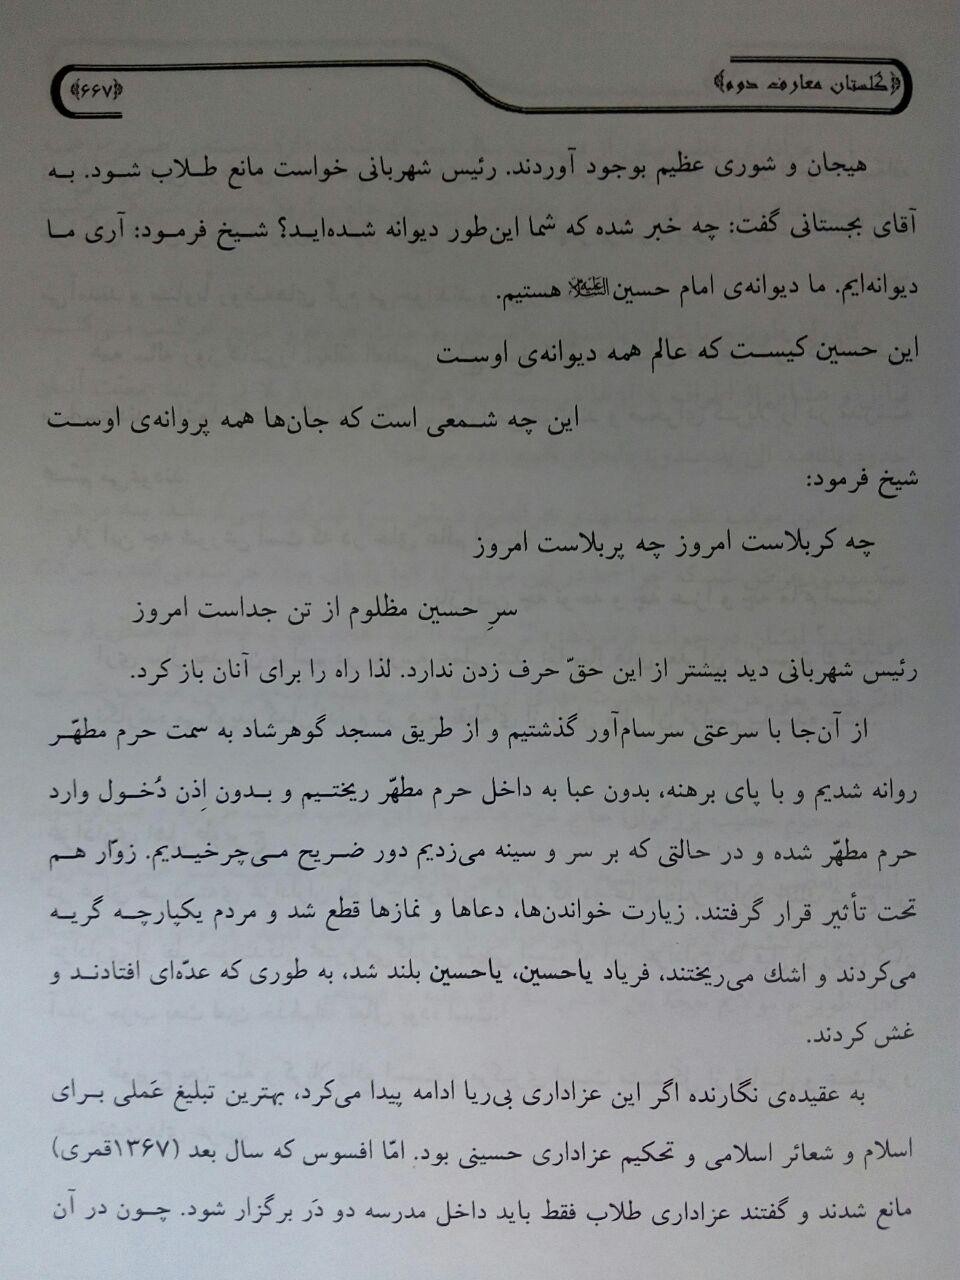 ﴿گلستان معارف دوم﴾ ﴿۶۶۷﴾
هیجان و شوری عظیم بوجود آوردند. رئیس شهربانی خواست مانع طلاب شود. به
آقای بجستانی گفت: چه خبر شده که شما این‌طور دیوانه شده‌اید؟ شیخ فرمود: آری ما
دیوانه‌ایم. ما دیوانه‌ی امام حسین علیه‌السلام هستیم.
این حسین کیست که عالم همه دیوانه‌ی اوست
این چه شمعی است که جان‌ها همه پروانه‌ی اوست
شیخ فرمود:
چه کربلاست امروز چه پربلاست امروز
سرِ حسین مظلوم از تن جداست امروز
رئیس شهربانی دید بیشتر از این حقّ حرف زدن ندارد. لذا راه را برای آنان باز کرد.
از آن‌جا با سرعتی سرسام‌آور گذشتیم و از طریق مسجد گوهرشاد به سمت حرم مطهّر
روانه شدیم و با پای برهنه، بدون عبا به داخل حرم مطهّر ریختیم و بدون اِذن دُخول وارد
حرم مطهّر شده و در حالتی که بر سر و سینه می‌زدیم دور ضریح می‌چرخیدیم. زوّار هم
تحت تأثیر قرار گرفتند. زیارت خواندن‌ها، دعاها و نمازها قطع شد و مردم یکپارچه گریه
می‌کردند و اشك می‌ریختند، فریاد یاحسین، یاحسین بلند شد، به طوری که عدّه‌ای افتادند و
غش کردند.
به عقیده‌ی نگارنده اگر این عزاداری بی‌ریا ادامه پیدا می‌کرد، بهترین تبلیغ عَملی برای
اسلام و شعائر اسلامی و تحکیم عزاداری حسینی بود. امّا افسوس که سال بعد (۱۳۶۷قمری)
مانع شدند و گفتند عزاداری طلاب فقط باید داخل مدرسه دو دَر برگزار شود. چون در آن